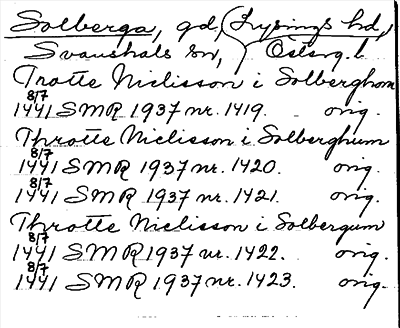 Solberga, gd, (Lysings hd,)
Svanshals sn, Österg. l.
Trotte Niclisson i Solberghom
8/7
1441 SMR 1937 nr. 1419. orig.
Throtte Niclisson i Solberghum
8/7
1441 SMR 1937 nr. 1420. orig.
8/7
1441 SMR 1937 nr. 1421. orig.
Throtte Niclisson i Solbergum
8/7
1441 SMR 1937 nr. 1422. orig.
8/7
1441 SMR 1937 nr. 1423. orig.